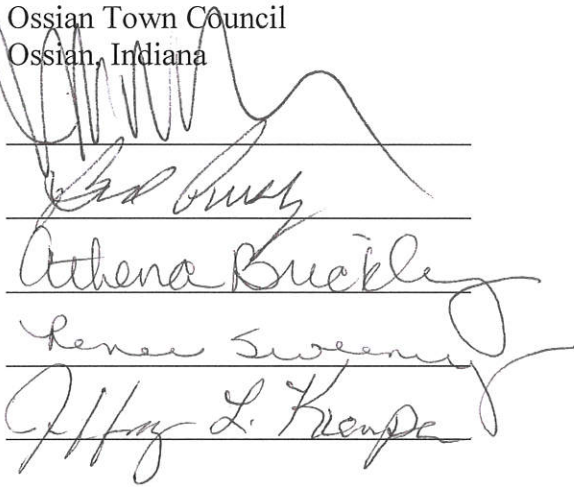 Ossian Town Council
Ossian, Indiana
Brad Pursley
Athena Buckley
Renee Sweeney
Jeffrey L. Kroempe